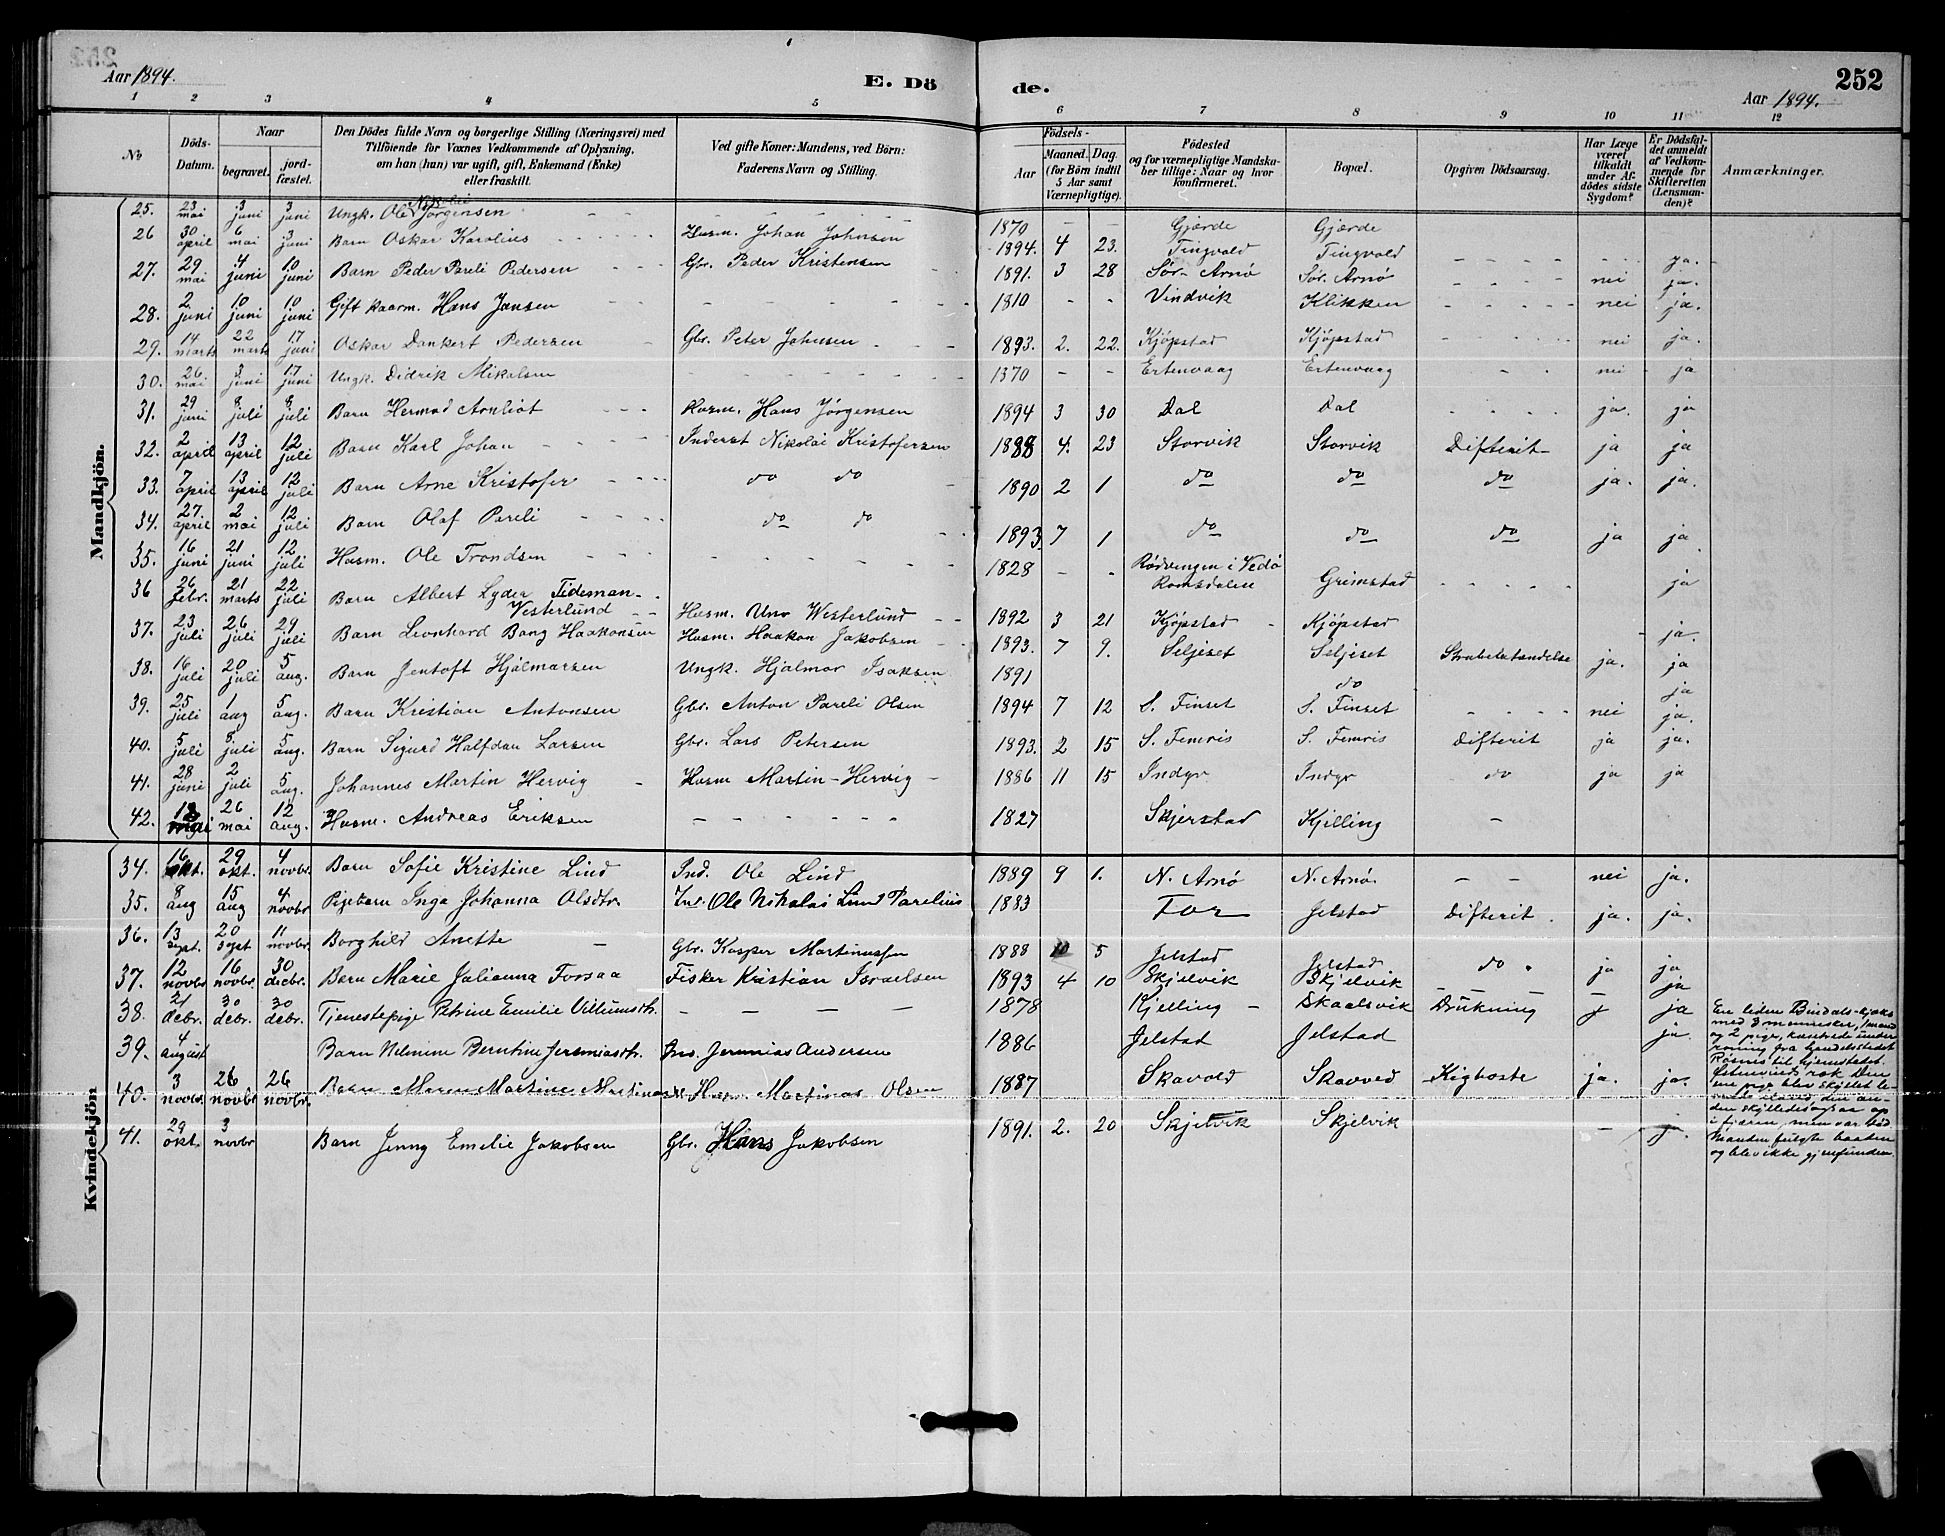 252
Aar 1894. E. Dö de. Aar 1894.
1 2 3 4 5 6 7 8 9 10 11 12
No
Döds-Datum.
Naar
begravet.
jord-fæstet.
Den Dödes fulde Navn og borgerlige Stilling (Næringsvei) med
Tilföiende for Voxnes Vedkommende af Oplysning,
om han (hun) var ugift, gift, Enkemand (Enke)
eller fraskilt.
Ved gifte Koner: Mandens, ved Börn:
Faderens Navn og Stilling.
Födsels-
Aar
Maaned. Dag.
(for Börn indtil
5 Aar samt
Værnepligtige).
Födested
og for værnepligtige Mandska-
ber tillige: Naar og hvor
konfirmeret.
Bopæl.
Opgiven Dödsaarsag.
Har Læge
været
tilkaldt
under Af-
dödes sidste
Sygdom?
Er Dödsfal-
det anmeldt
af Vedkom-
mende for
Skifteretten
(Lensman-
den)?
Anmærkninger.
Mandkjön.
25. 23 mai 3 juni 3 juni Ungk. Ole Nikolai Jörgensen - - 1870 - - Gjærde Gjærde
26 30 april 6 mai 3 juni Barn Oskar Karolius Husm. Johan Johnsen 1894. 4 23. Tingvold Tingvold ja.
27. 29 mai 4 juni 10 juni Barn Peder Pareli Pedersen Gbr. Peder Kristensen 1891. 3 28 Sör-Arnö Sör. Arnö nei ja.
28. 2 juni 10 juni 10 juni Gift kaarm. Hans Jansen 1810 - - Vindvik Klikken nei ja.
29. 14 marts 22 marts 17 juni Oskar Dankert Pedersen Gbr. Peter Johnsen 1893. 2. 22. Kjöpstad Kjöpstad nei ja.
30. 26. mai 3 juni 17 juni Ungk. Didrik Mikalsen 1870 - - Ertenvaag Ertenvaag nei ja
31. 29 juni 8 juli 8 juli Barn Hermod Arnliot Husm. Hans Jörgensen 1894 3 30 Dal Dal ja. ja
32. 2 april 13 april 12 juli Barn Karl Johan Inderst Nikolai Kristofersen 1888 4. 23 Storvik Storvik Difterit ja ja
33. 7 april 13 april 12 juli Barn Arne Kristofer do do 1890 2 1 do do do ja. ja.
34. 27. april 2 mai 12 juli Barn Olaf Pareli do do 1893 7 1 do do do ja ja.
35. 16 juni 21 juni 12 juli Husm. Ole Trondsen 1828 - - Rödvengen i Vedö Romsdalen Grimstad ja
36 26 febr. 21 marts 22 juli Barn Albert Lyder Tideman Westerlund Husm. Uno Westerlund 1892 3 21 Kjöpstad Kjöpstad ja.
37. 23 juli 26 juli 29 juli Barn Leonhard Bang Haakonsen Husm. Haakon Jakobsen 1893. 7 9. Seljeset Seljeset Strubebetændelse ja. ja
38. 16 juli 20 juli 5 aug. Barn Jentoft Hjalmarsen Ungk. Hjalmar Isaksen 1891 do ja
39. 25 juli 1 aug 5 aug. Barn Kristian Antonsen Gbr. Anton Pareli Olsen 1894 7 12 S. Finset S. Finset nei ja.
40. 5 juli 8. juli 5 aug. Barn Sigurd Halfdan Larsen Gbr. Lars Petersen 1893. 2 15 S. Femris S. Femris Difterit ja ja.
41. 28 juni 2 juli 5 aug. Johannes Martin Hervig Husm Martin Hervig 1886 11 15 Indyr Indyr do ja ja
42. 18 mai 26 mai 12 aug. Husm. Andreas Eriksen 1827 Skjerstad Kjelling -
Kvindekjön
34. 16 okt. 29 okt. 4 novbr. Barn Sofie Kristine Lind Ind. Ole Lind 1889 9 1. N. Arnö N. Arnö. - - nei ja.
35. 8 aug 15 aug 4 novbr Pigebarn Inga Johanna Olsdtr. Ind. Ole Nikolai Lund Parelius 1883 For Jelstad Difterit. ja. ja.
36. 13 sept. 20 sept 11 novbr. Borghild Anette Gbr. Kasper Martinussen 1888 10 5 Jelstad Jelstad do ja ja
37. 12 novbr 16 novbr. 30 decbr. Barn Marie Julianna Forsaa Fisker Kristian Israelsen 1893 4 10 Skjelvik Skjelvik ja
38. 21 debr. 30 debr. 30 debr. Tjenestepige Petrine Emilie Villumsdtr. 1878 Kjelling Skaalsvik Drukning ja
39. 4 august Barn Nelmine Berntine Jeremiasdtr. Ind. Jeremias Andersen 1886 Jelstad Jelstad ja.
40. 3 novbr. 26 novbr 26 novbr. Barn Maren Martine Martinusd. Husm. Martinus Olsen 1887 Skavold Skavved Kighoste ja. ja.
41. 29 okt. 3 novbr Barn Jenny Emelie Jakobsen Gbr. Hans Jakobsen 1891. 2. 20 Skjelvik Skjelvik - j.
En liden Bindals-kjæks
med 3 mennesker, 1 mand
og 2 piger, kantrede under
roning fra handelsstedet
Rösnes til hjemstedet
rok Den
ene pige blev skyllet le-
vende iland, den an-
den skylledes ogsaa op
i fjæren, men var död.
Manden fulgte baaden
og blev ikke gjenfunden.